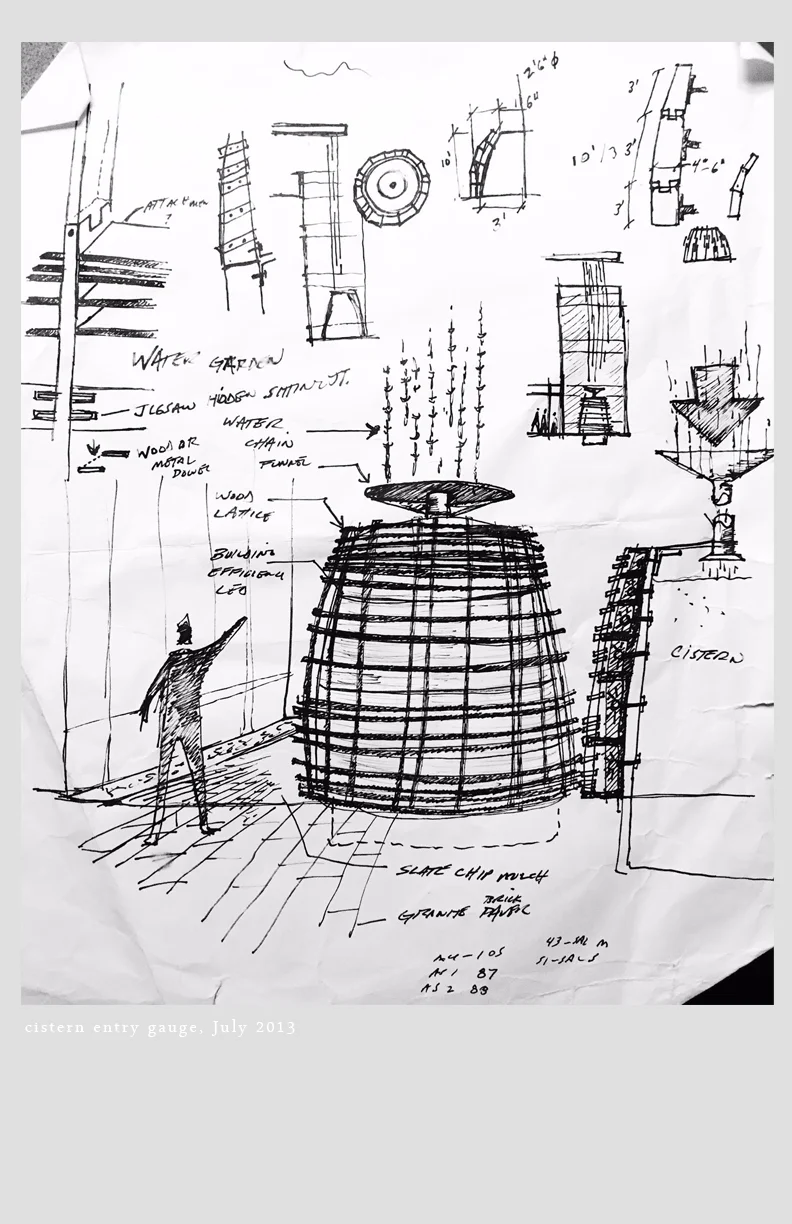 2'6" ϕ
6"
10'
3'
3'
10'/3 3'
4"-6"
3'
ATTACHMEN
?
WATER GARDEN
JIGSAW HIDDEN
WATER
CHAIN
FUNNEL
WOOD OR
METAL
DOWEL
WOOD
LATTICE
BUILDING
EFFICIENCY
LED
CISTERN
SLATE CHIP MULCH
BRICK
GRANITE PAVER
43-SAL M
51-SAL S
105
AS 1 87
AS 2 88
cistern entry gauge, July 2013